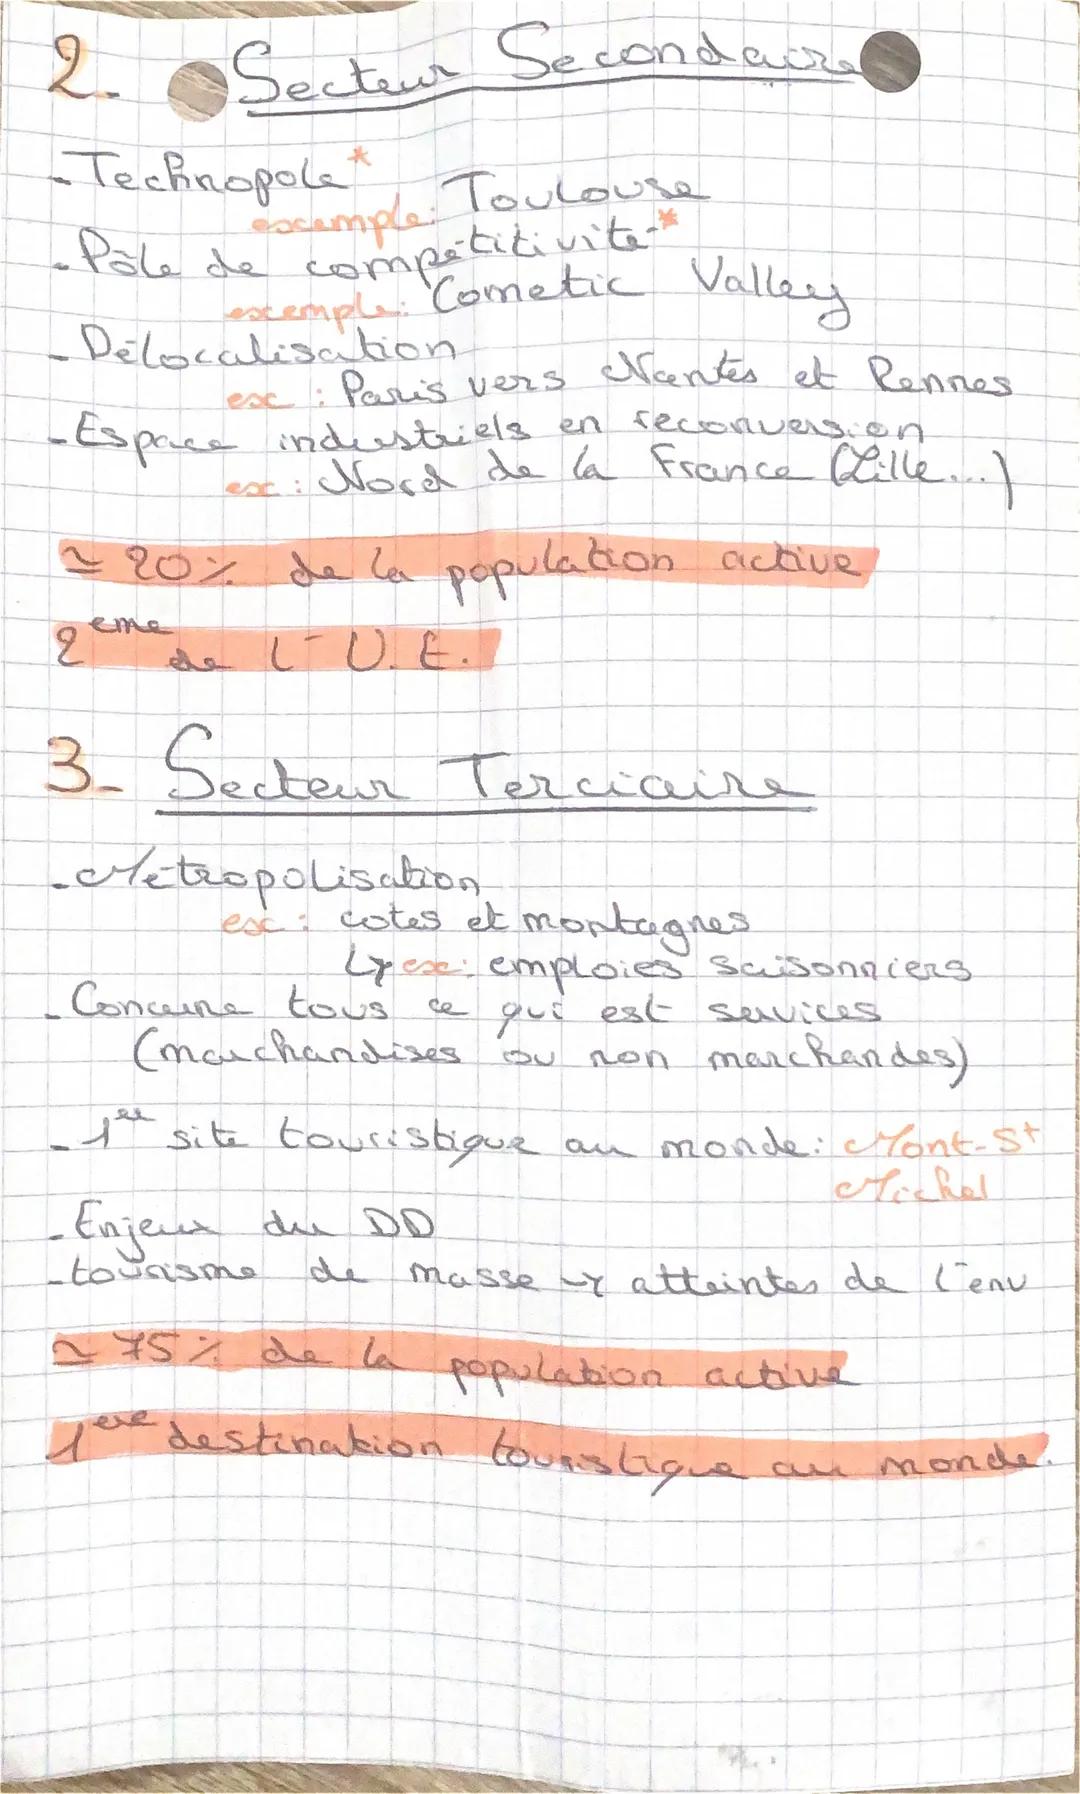 2. Secteur Secondaire
- Technopole*
exemple: Toulouse
- Pôle de compétitivité*
exemple: Cometic Valley
- Délocalisation
ex : Paris vers Nantes et Rennes
- Espace industriels en reconversion
ex : Nord de la France (Lille...)
≃ 20% de la population active
2eme de l'U.E.
3- Secteur Terciaire
- Métropolisation
ex : cotes et montagnes
↳ ex: emploies saisonniers
- Concerne tous ce qui est services
(marchandises ou non marchandes)
- 1er site touristique au monde: Mont-St
Michel
- Enjeux du DD
- tourisme de masse → atteintes de l'env
≃ 75% de la population active
1ere destination touristique au monde.